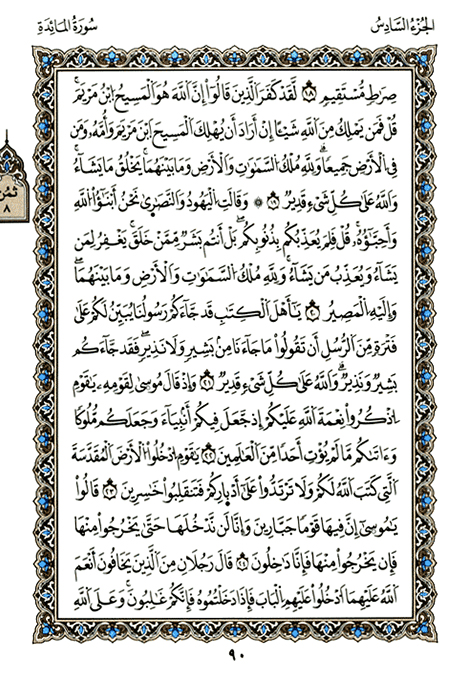 الجُزْءُ السَّادِسُ
سُورَةُ المَائِدَةِ
صِرَٰطٖ مُّسْتَقِيمٖ ١٨ لَّقَدْ كَفَرَ ٱلَّذِينَ قَالُوٓاْ إِنَّ ٱللَّهَ هُوَ ٱلْمَسِيحُ ٱبْنُ مَرْيَمَۚ
قُلْ فَمَن يَمْلِكُ مِنَ ٱللَّهِ شَيْـًٔا إِنْ أَرَادَ أَن يُهْلِكَ ٱلْمَسِيحَ ٱبْنَ مَرْيَمَ وَأُمَّهُۥ وَمَن
فِي ٱلْأَرْضِ جَمِيعٗاۗ وَلِلَّهِ مُلْكُ ٱلسَّمَٰوَٰتِ وَٱلْأَرْضِ وَمَا بَيْنَهُمَاۚ يَخْلُقُ مَا يَشَآءُۚ
وَٱللَّهُ عَلَىٰ كُلِّ شَيْءٖ قَدِيرٞ ١٩ ۞ وَقَالَتِ ٱلْيَهُودُ وَٱلنَّصَٰرَىٰ نَحْنُ أَبْنَٰٓؤُاْ ٱللَّهِ
وَأَحِبَّٰٓؤُهُۥۚ قُلْ فَلِمَ يُعَذِّبُكُم بِذُنُوبِكُمۖ بَلْ أَنتُم بَشَرٞ مِّمَّنْ خَلَقَۚ يَغْفِرُ لِمَن
يَشَآءُ وَيُعَذِّبُ مَن يَشَآءُۚ وَلِلَّهِ مُلْكُ ٱلسَّمَٰوَٰتِ وَٱلْأَرْضِ وَمَا بَيْنَهُمَاۖ
وَإِلَيْهِ ٱلْمَصِيرُ ٢٠ يَٰٓأَهْلَ ٱلْكِتَٰبِ قَدْ جَآءَكُمْ رَسُولُنَا يُبَيِّنُ لَكُمْ عَلَىٰ
فَتْرَةٖ مِّنَ ٱلرُّسُلِ أَن تَقُولُواْ مَا جَآءَنَا مِنۢ بَشِيرٖ وَلَا نَذِيرٖۖ فَقَدْ جَآءَكُم
بَشِيرٞ وَنَذِيرٞۗ وَٱللَّهُ عَلَىٰ كُلِّ شَيْءٖ قَدِيرٞ ٢١ وَإِذْ قَالَ مُوسَىٰ لِقَوْمِهِۦ يَٰقَوْمِ
ٱذْكُرُواْ نِعْمَةَ ٱللَّهِ عَلَيْكُمْ إِذْ جَعَلَ فِيكُمْ أَنۢبِيَآءَ وَجَعَلَكُم مُّلُوكٗا
وَءَاتَىٰكُم مَّا لَمْ يُؤْتِ أَحَدٗا مِّنَ ٱلْعَٰلَمِينَ ٢٢ يَٰقَوْمِ ٱدْخُلُواْ ٱلْأَرْضَ ٱلْمُقَدَّسَةَ
ٱلَّتِي كَتَبَ ٱللَّهُ لَكُمْ وَلَا تَرْتَدُّواْ عَلَىٰٓ أَدْبَارِكُمْ فَتَنقَلِبُواْ خَٰسِرِينَ ٢٣ قَالُواْ
يَٰمُوسَىٰٓ إِنَّ فِيهَا قَوْمٗا جَبَّارِينَ وَإِنَّا لَن نَّدْخُلَهَا حَتَّىٰ يَخْرُجُواْ مِنْهَا
فَإِن يَخْرُجُواْ مِنْهَا فَإِنَّا دَٰخِلُونَ ٢٤ قَالَ رَجُلَانِ مِنَ ٱلَّذِينَ يَخَافُونَ أَنْعَمَ
ٱللَّهُ عَلَيْهِمَا ٱدْخُلُواْ عَلَيْهِمُ ٱلْبَابَ فَإِذَا دَخَلْتُمُوهُ فَإِنَّكُمْ غَٰلِبُونَۚ وَعَلَى ٱللَّهِ
ثُمُن
٨
٩٠